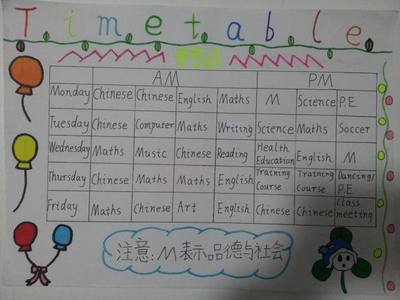 Timetable
AM PM
Monday Chinese Chinese English Maths M Science P.E
Tuesday Chinese Computer Maths Writing Science Maths Soccer
Wednesday Maths Music Chinese Reading Health Education English M
Thursday Chinese Maths Maths English Training Course Training Course Dancing/ P.E
Friday Maths Chinese Art English Chinese Chinese Class meeting
注意:M表示品德与社会